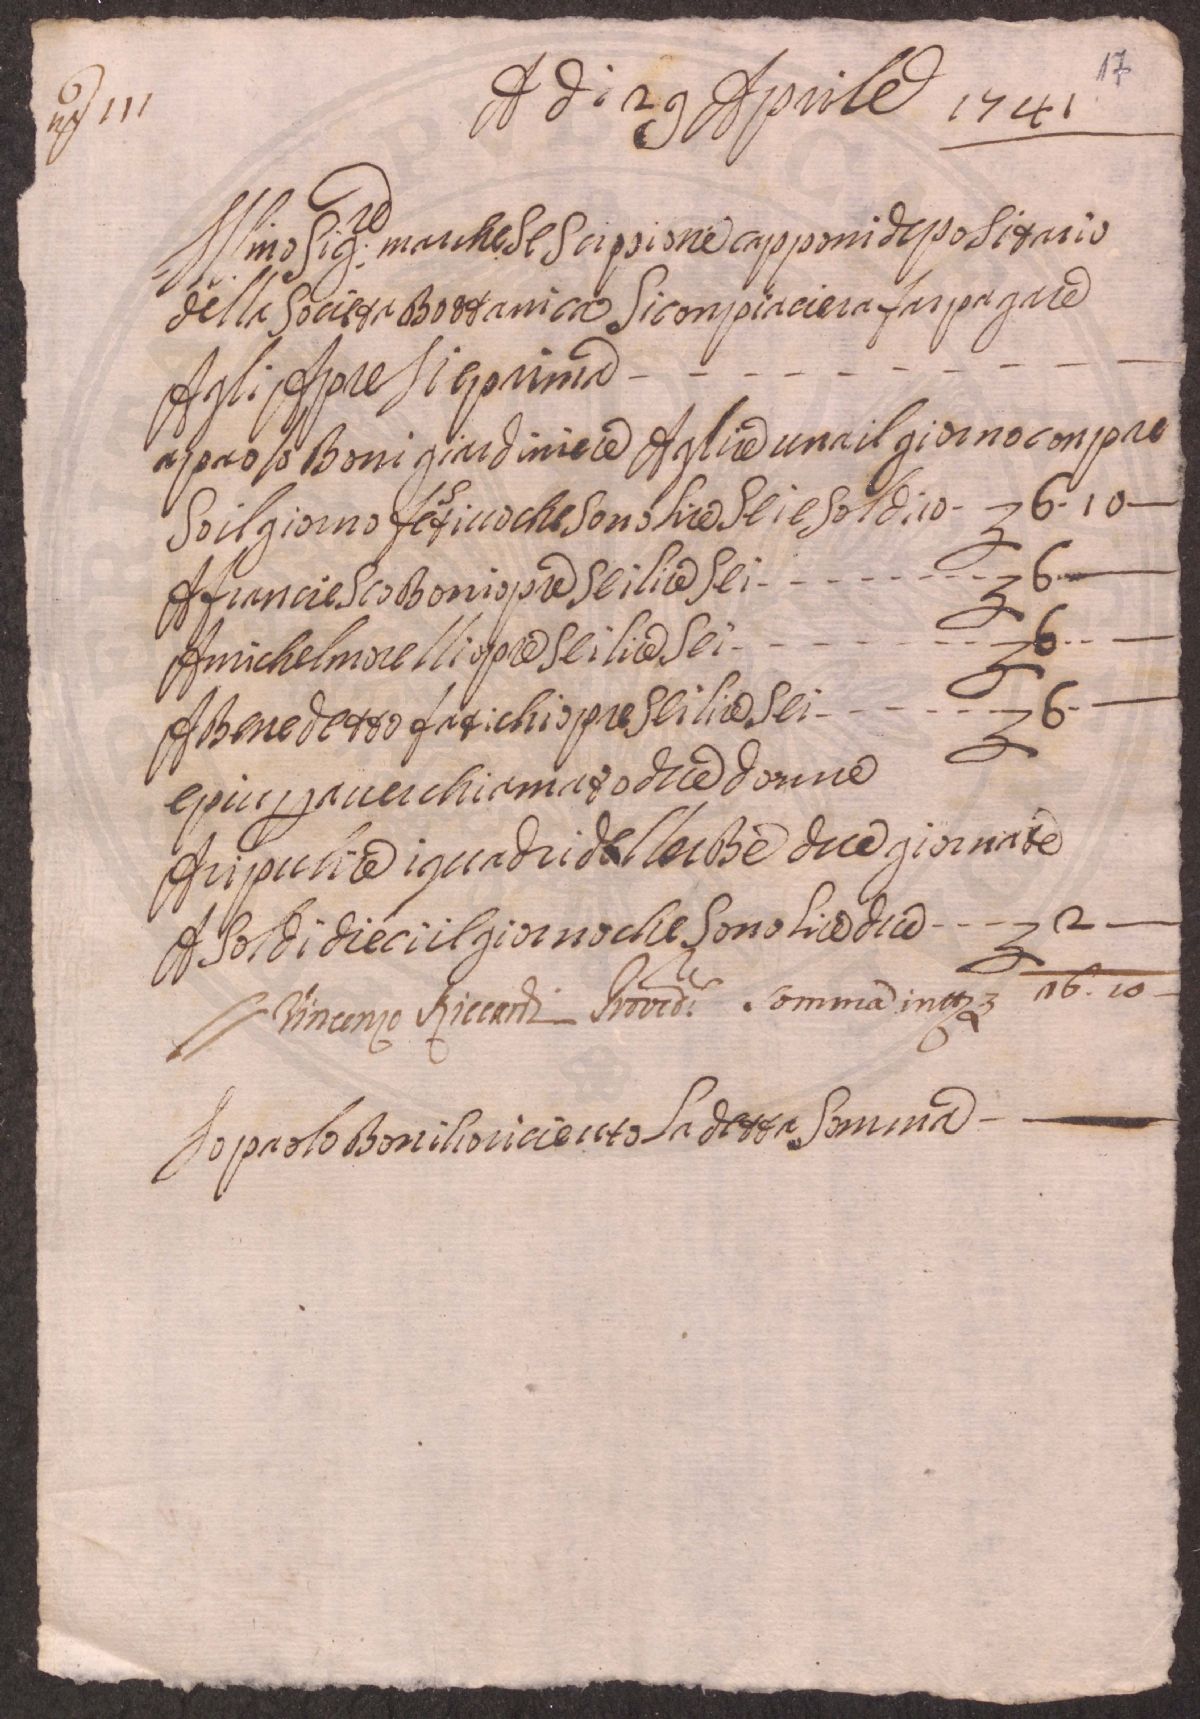 17
A di 29 Aprile 1741
111
Ill:mo Sig:re marchese Scippione capponi depositario
della Societa Bottanica, Si conpiaciera far pagare
Agli Apresie prima
a paolo Boni giardiniere A lire una il giorno conpre
so il giorno festiuo che sono lire Sei e Soldi 10 6.10
A franciesco Boni opre Sei lire Sei 6
A michel morelli opre Sei lire Sei 6
A Benedetto fatichi opre Sei lire Sei 6
e piu p auer chiamato due donne
A ripulire i quadri dell erBe due giornate
A Soldi dieci il giorno che Sono Lire due 2
Vincenzo Riccardi Proved:re Somma in tt 16.10
Io paolo Boni ho ricieuto La detta Somma